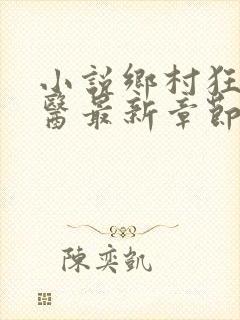 小說鄉村狂
醫最新章節
陳奕凱